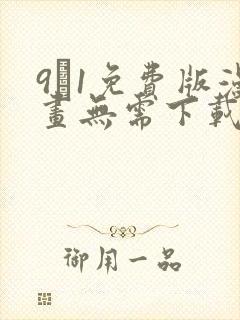 9�1免費版漫
畫無需下載
御用一品